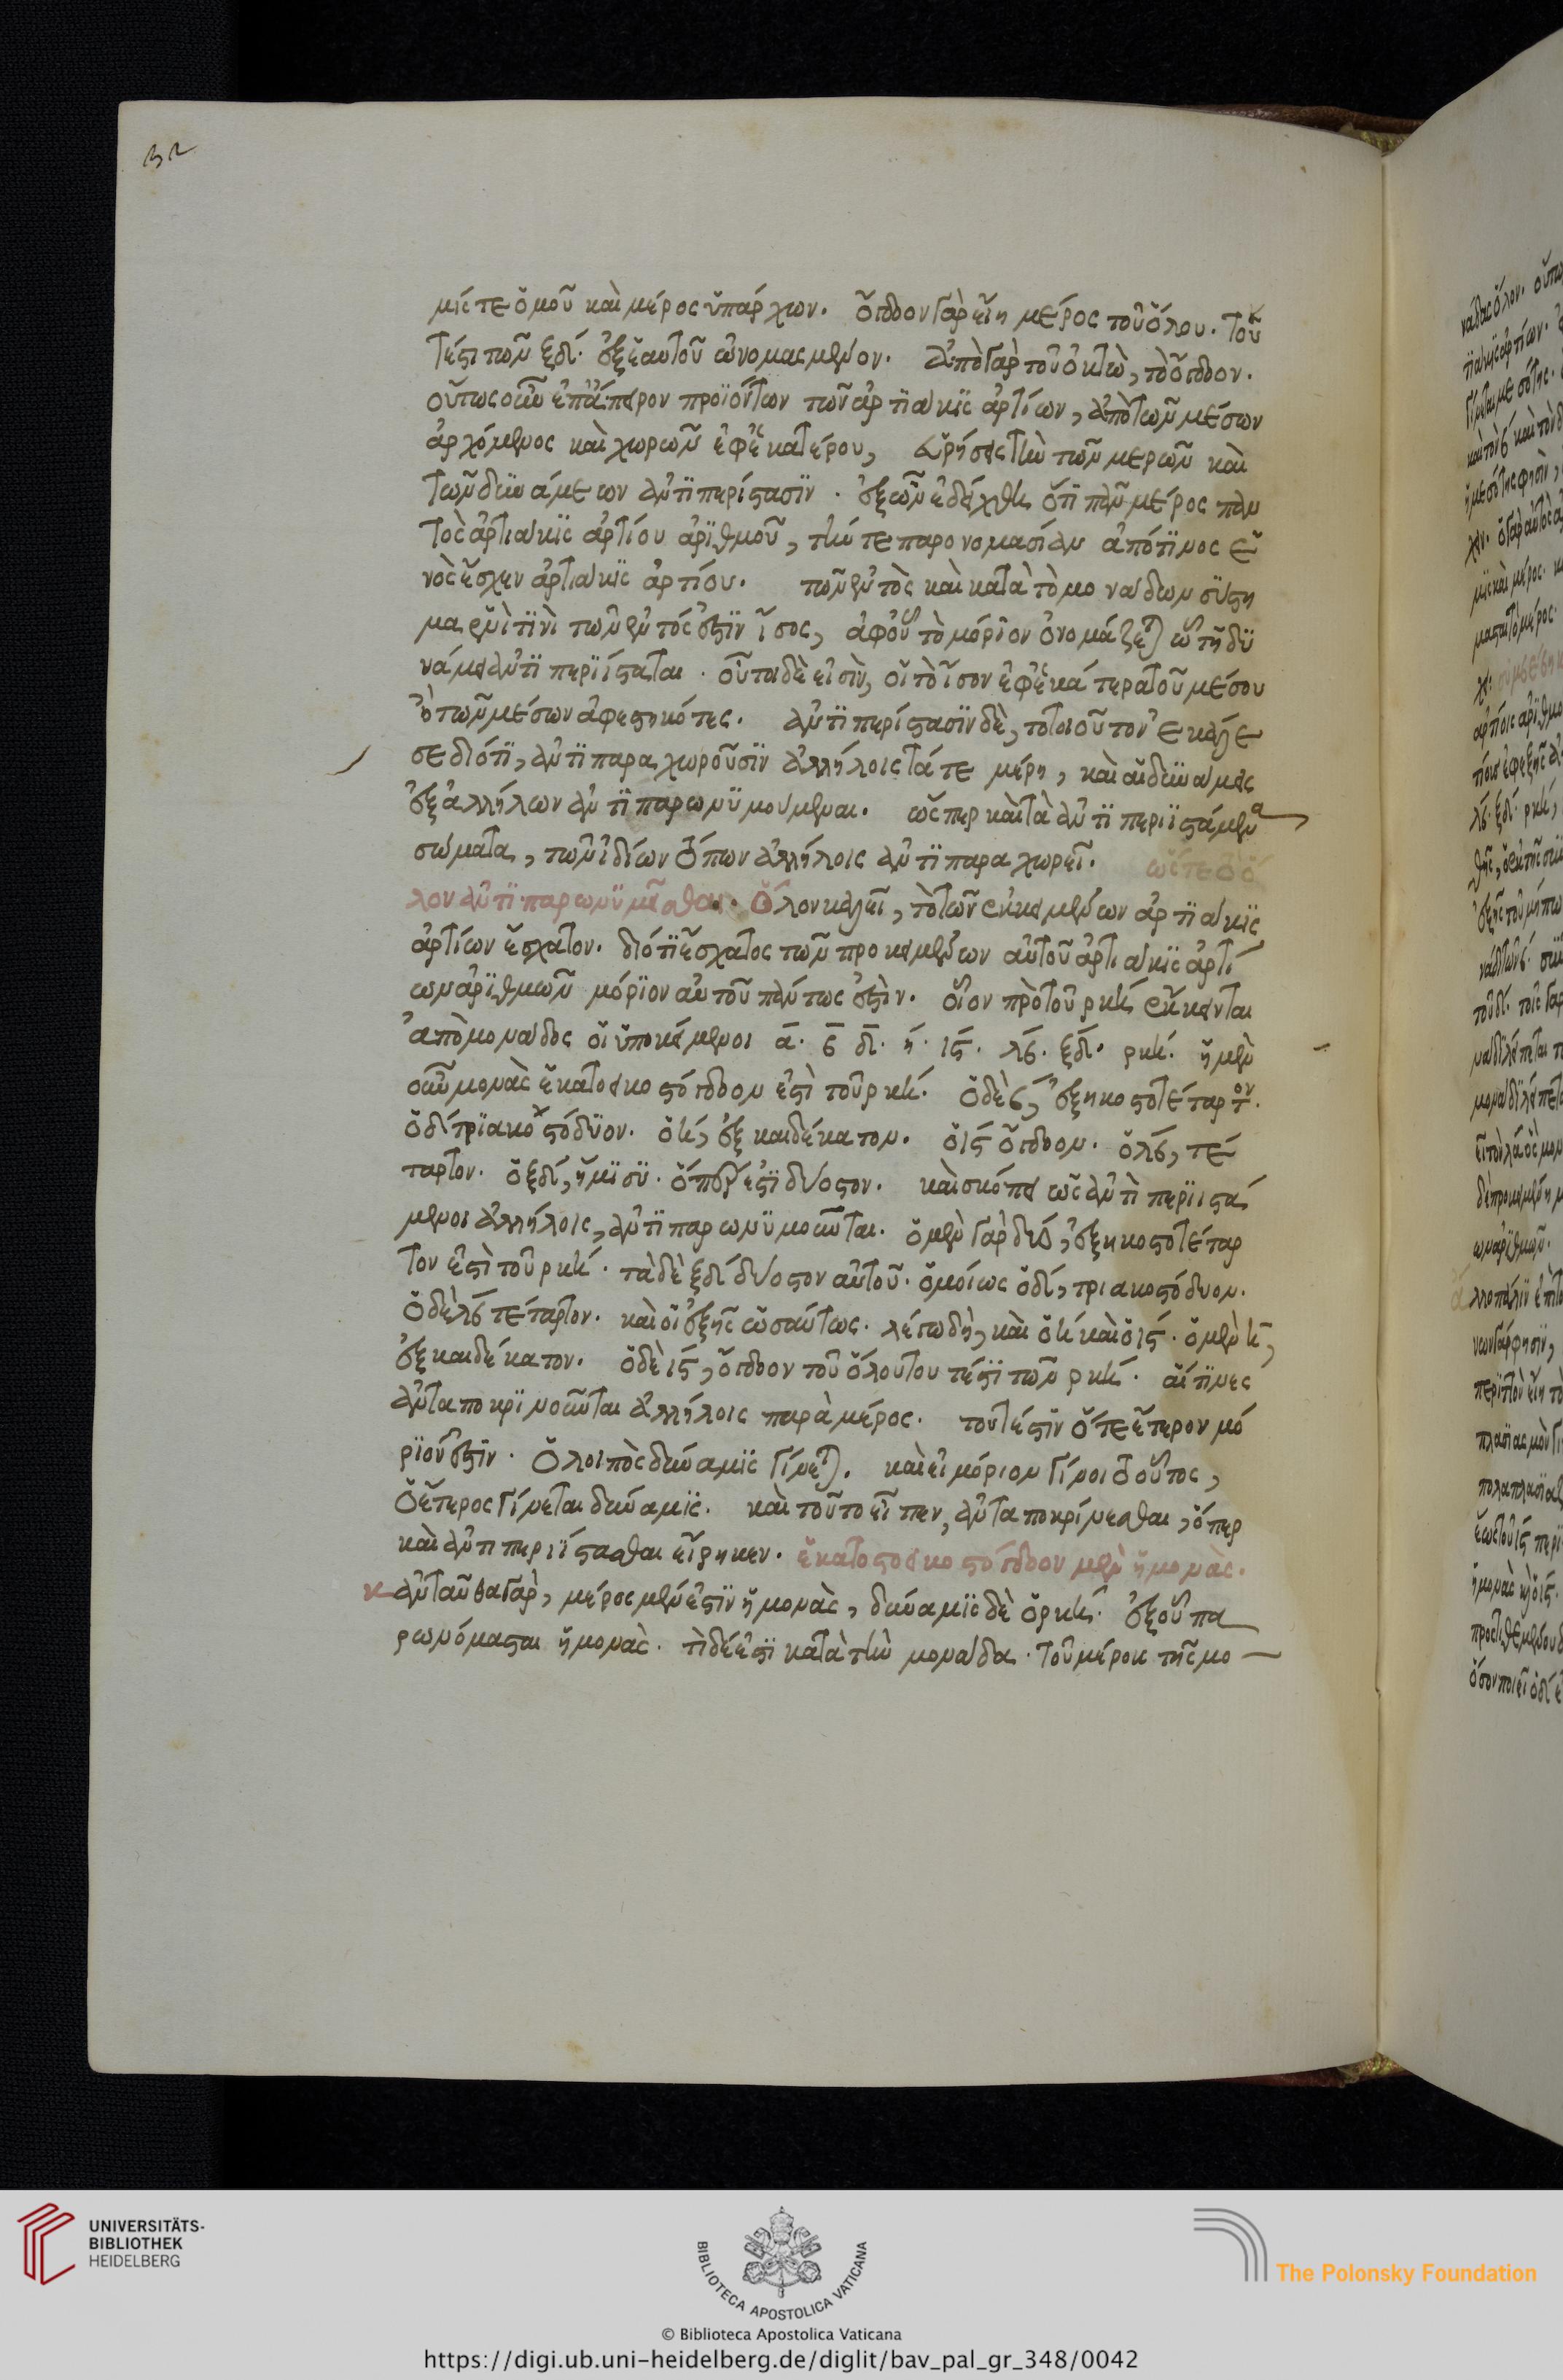 32
μις τε ὁμοῦ καὶ μέρος ὑπάρχων. ὄγδοον γὰρ εἴη μέρος τοῦ ὅλου. του
τέστι τῶν ξδ. ἐξ ἑαυτοῦ ὠνομασμένον. ἀπὸ γὰρ τοῦ ὀκτὼ, τὸ ὄγδοον.
οὕτως οὖν ἐπ' ἄπειρον προϊόντων τῶν ἀρτιάκις ἀρτίων, ἀπὸ τῶν μέσων
ἀρχόμενος καὶ χωρῶν ἐφ' ἑκατέρου, εὑρήσεις τὴν τῶν μερῶν καὶ
τῶν δυνάμεων ἀντιπερίστασιν. ἐξ ὧν ἐδείχθη ὅτι πᾶν μέρος παν
τὸς ἀρτιάκις ἀρτίου ἀριθμοῦ, τήν τε παρονομασίαν ἀπό τινος ἑ
νὸς ἔσχεν ἀρτιάκις ἀρτίου. τῶν ἐντὸς καὶ κατὰ τὸ μονάδων σύστη
μα ἑνὶ τινὶ τῶν ἐντός ἐστιν ἴσος, ἀφ' οὗ τὸ μόριον ὀνομάζεται ᾧ τῇ δυ
νάμει ἀντιπεριίσταται. οὗτοι δὲ εἰσὶν, οἱ τὸ ἴσον ἐφ' ἑκάτερα τοῦ μέσου
ἢ τῶν μέσων ἀφεστηκότες. ἀντιπερίστασιν δὲ, τὸ τοιοῦτον ἐκάλε
σε διότι, ἀντιπαραχωροῦσιν ἀλλήλοις τά τε μέρη, καὶ αἱ δυνάμεις
ἐξ ἀλλήλων ἀντιπαρωνυμούμεναι. ὥσπερ καὶ τὰ ἀντιπεριιστάμενα
σώματα, τῶν ἰδίων τόπων ἀλλήλοις ἀντιπαραχωρεῖ. ὥστε τὸ ὅ
λον ἀντιπαρωνυμεῖσθαι. Ὅλον καλεῖ, τὸ τῶν ἐκκειμένων ἀρτιάκις
ἀρτίων ἔσχατον. διότι ἔσχατος τῶν προκειμένων αὐτοῦ ἀρτιάκις ἀρτί
ων ἀριθμῶν μόριον αὐτοῦ πάντως ἐστὶν. οἷον πρὸ τοῦ ρκη ἔκκεινται
ἀπὸ μονάδος οἱ ὑποκείμενοι α. β δ. η. ις. λβ. ξδ. ρκη. ἡ μὲν
οὖν μονὰς ἑκατοεικοστόγδοον ἐστὶ τοῦ ρκη. ὁ δὲ β, ἐξηκοστοτέταρτον.
ὁ δ, τριακοστόδυον. ὁ η, ἑξκαιδέκατον. ὁ ις ὄγδοον. ὁ λβ, τέ
ταρτον. ὁ ξδ, ἥμισυ. ὅπερ ἐστὶ δυοστον. καὶ σκόπει ὡς ἀντιπεριιστά
μενοι ἀλλήλοις, ἀντιπαρωνυμοῦνται. ὁ μὲν γὰρ δύο, ἐξηκοστοτέταρ
τον ἐστὶ τοῦ ρκη. τὰ δὲ ξδ δυοστον αὐτοῦ. ὁμοίως ὁ δ, τριακοστόδυον.
ὁ δὲ λβ τέταρτον. καὶ οἱ ἑξῆς ὡσαύτως. λέγω δὴ, καὶ ὁ η καὶ ὁ ις. ὁ μὲν η,
ἑξκαιδέκατον. ὁ δὲ ις, ὄγδοον τοῦ ὅλου τουτέστι τῶν ρκη. αἵτινες
ἀνταποκρίνονται ἀλλήλοις παρὰ μέρος. τουτέστιν ὅτε ἕτερον μό
ριόν ἐστιν. ὁ λοιπὸς δύναμις γίνεται. καὶ εἰ μόριον γίνοιτο οὗτος,
ὁ ἕτερος γίνεται δύναμις. καὶ τοῦτο εἶπεν, ἀνταποκρίνεσθαι, ὅπερ
καὶ ἀντιπεριίστασθαι εἴρηκεν. ἑκατοστοεικοστόγδοον μὲν ἡ μονὰς.
ἀνταῦθα γὰρ, μέρος μέν ἐστιν ἡ μονὰς, δύναμις δὲ ὁ ρκη. ἐξ οὗ πα
ρωνόμασται ἡ μονὰς. τὶ δέ ἐστι κατὰ τὴν μονάδα. τοῦ μέρους τῆς μο
UNIVERSITÄTS-
BIBLIOTHEK
HEIDELBERG
BIBLIOTECA APOSTOLICA VATICANA
The Polonsky Foundation
© Biblioteca Apostolica Vaticana
https://digi.ub.uni-heidelberg.de/diglit/bav_pal_gr_348/0042